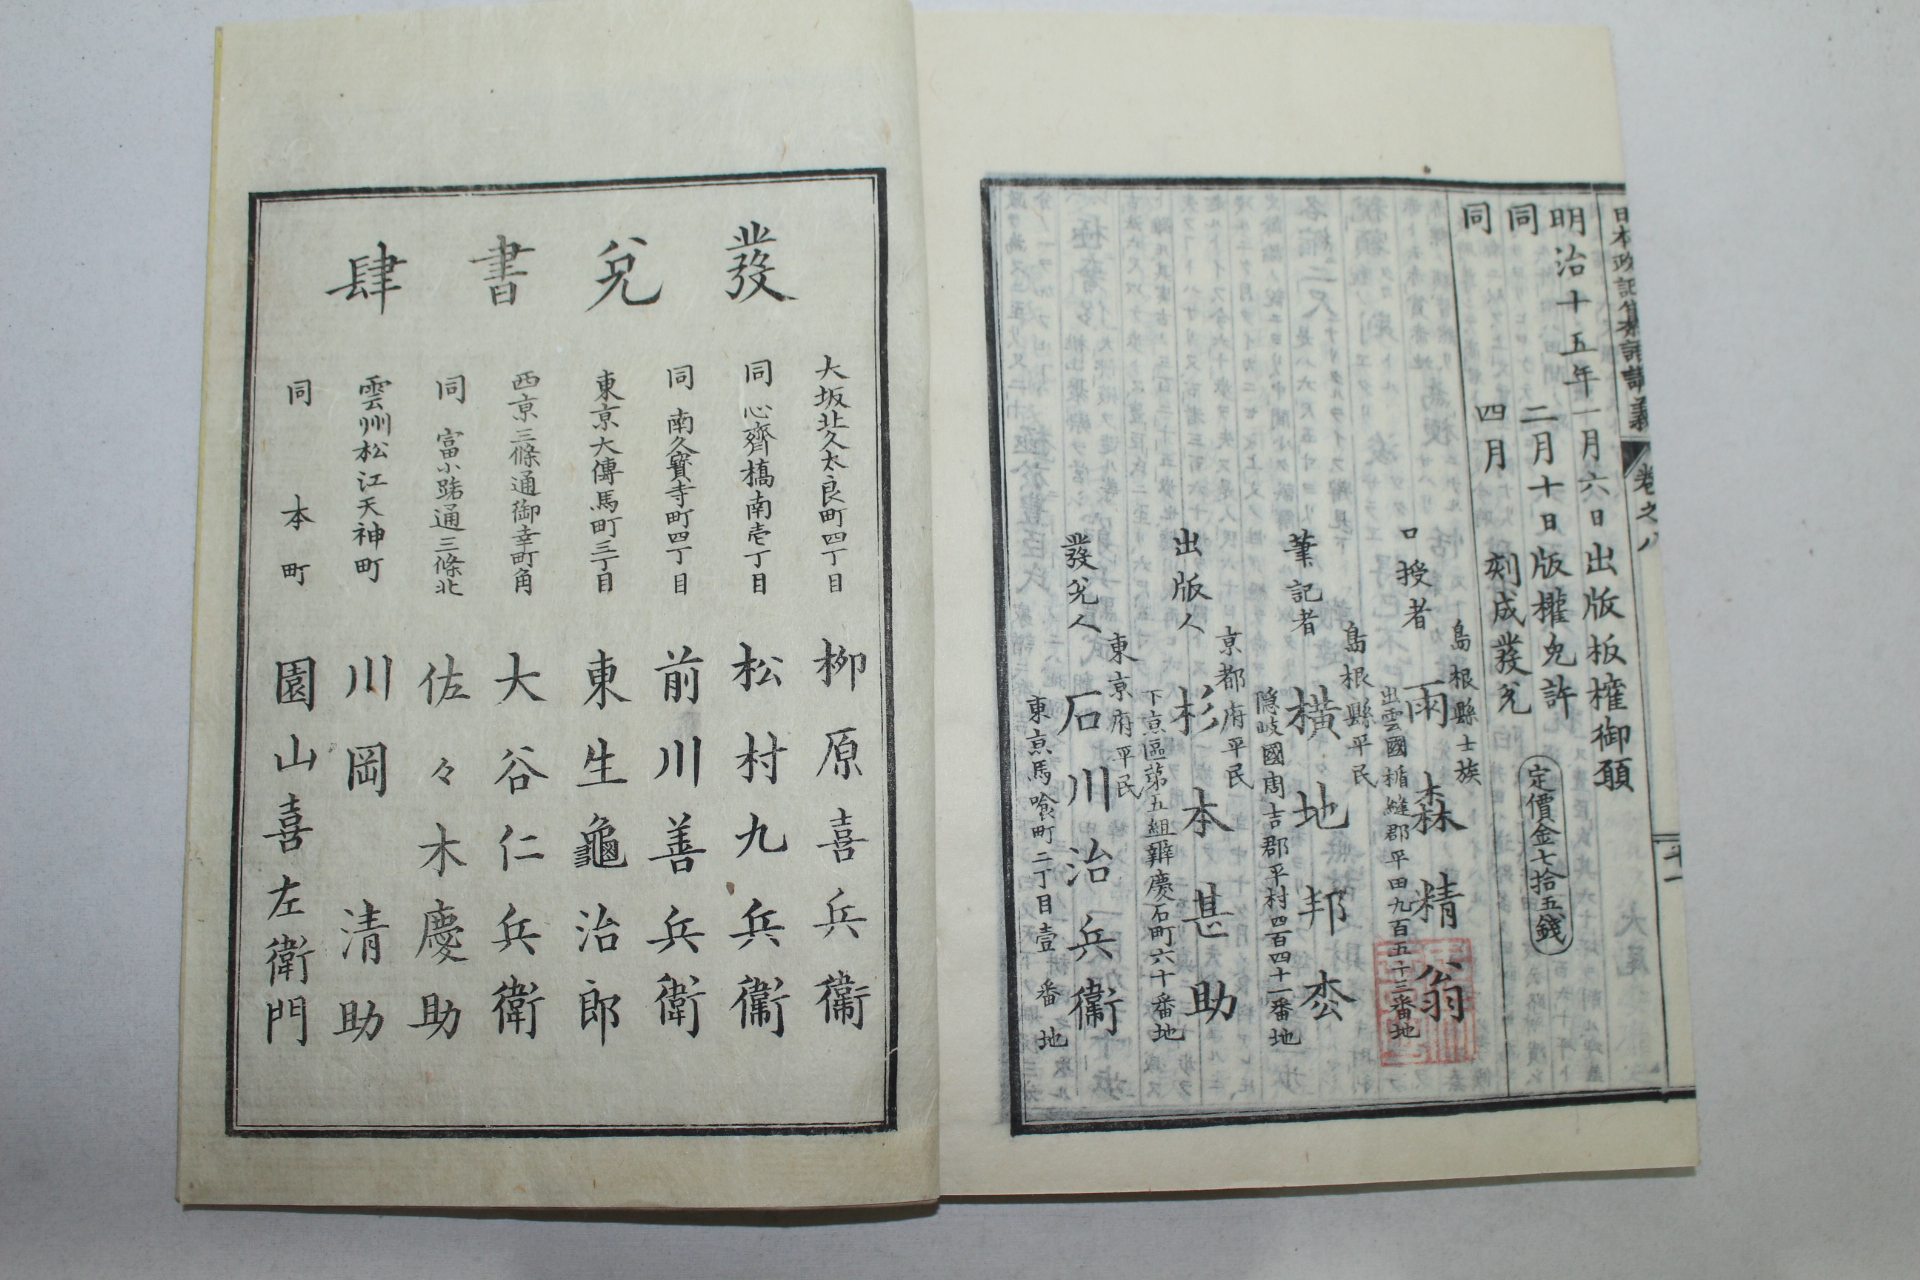 明治十五年一月六日出版板権御願
同 二月十日版權免許
同 四月 刻成發兌
定價金七拾五錢
口授者
島根縣士族
雨森精翁
出雲國楯縫郡平田九百五十三番地
筆記者
島根縣平民
横地邦枩
隠岐國周吉郡平村四百四十一番地
出版人
京都府平民
杉本甚助
下京區第五組辨慶石町六十番地
發兌人
東京府平民
石川治兵衞
東京馬喰町二丁目壹番地
發兌書肆
大坂北久太良町四丁目 柳原喜兵衞
同 心齊橋南壱丁目 松村九兵衞
同 南久寳寺町四丁目 前川善兵衛
東京大傳馬町三丁目 東生龜治郎
西京三條通御幸町角 大谷仁兵衛
同 富小路通三條北 佐々木慶助
雲州松江天神町 川岡清助
同 本町 園山喜左衛門